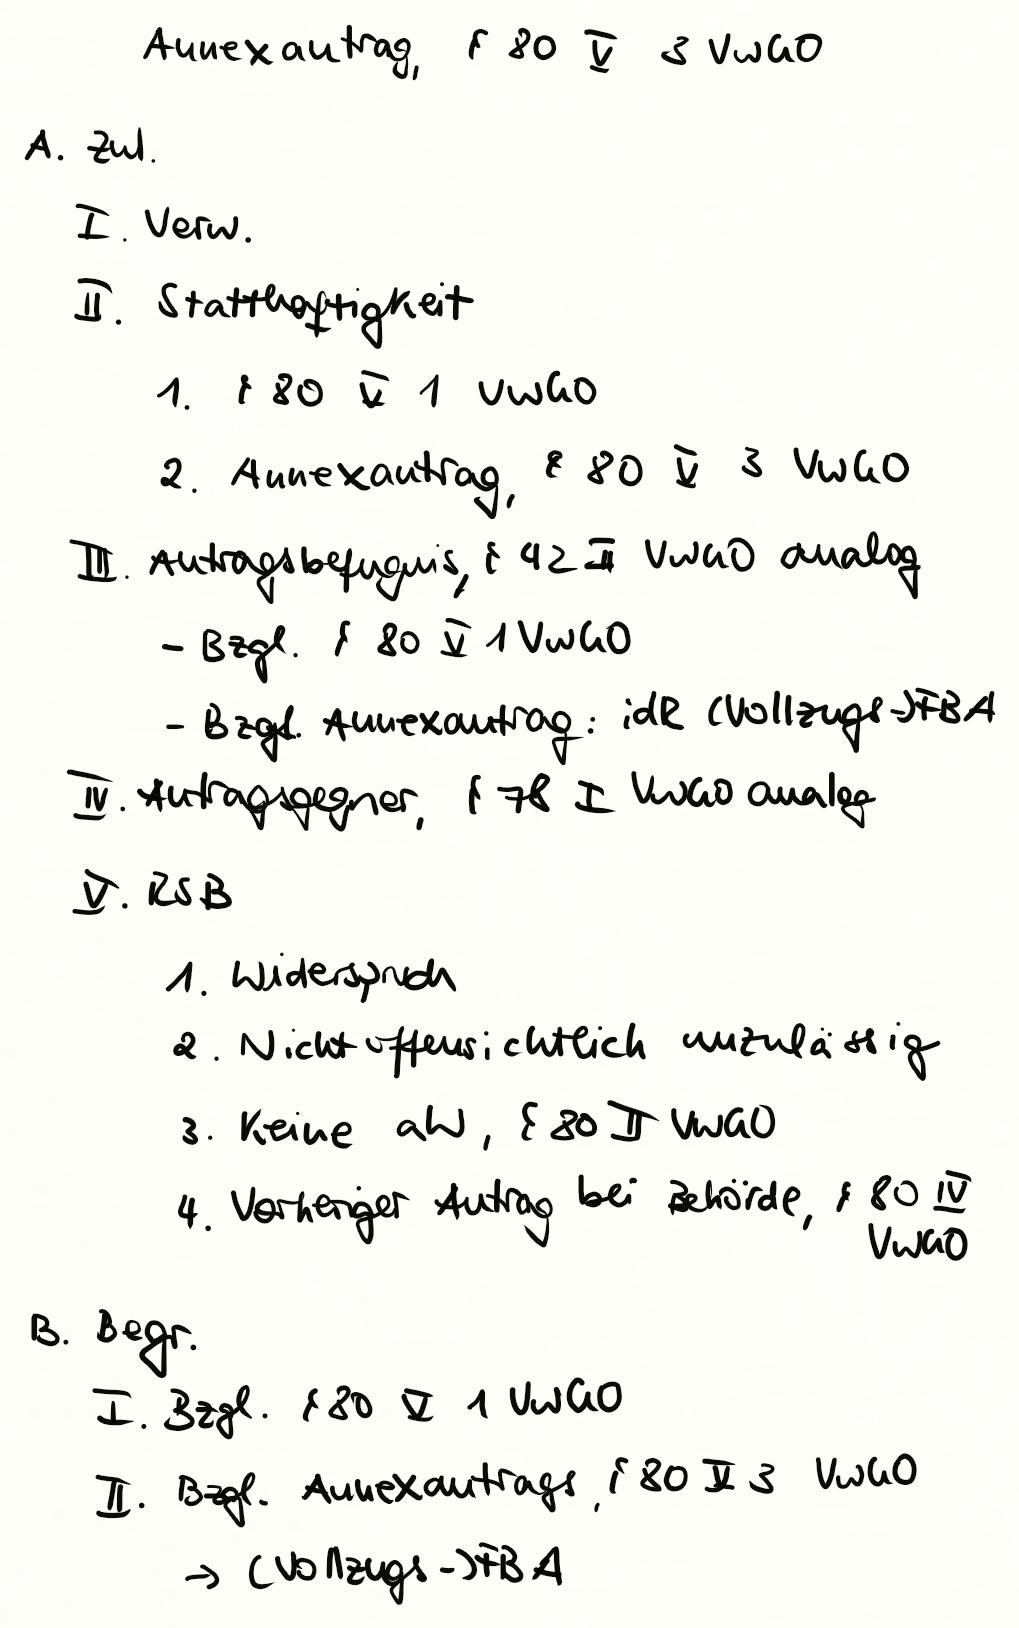 Annexantrag, § 80 V 3 VwGO
A. Zul.
I. Verw.
II. Statthaftigkeit
1. § 80 V 1 VwGO
2. Annexantrag, § 80 V 3 VwGO
III. Antragsbefugnis, § 42 II VwGO analog
- Bzgl. § 80 V 1 VwGO
- Bzgl. Annexantrag: idR (Vollzugs-)FBA
IV. Antragsgegner, § 78 I VwGO analog
V. RSB
1. Widerspruch
2. Nicht offensichtlich unzulässig
3. Keine aW, § 80 II VwGO
4. Vorheriger Antrag bei Behörde, § 80 IV
VwGO
B. Begr.
I. Bzgl. § 80 V 1 VwGO
II. Bzgl. Annexantrags, § 80 V 3 VwGO
→ (Vollzugs-)FBA